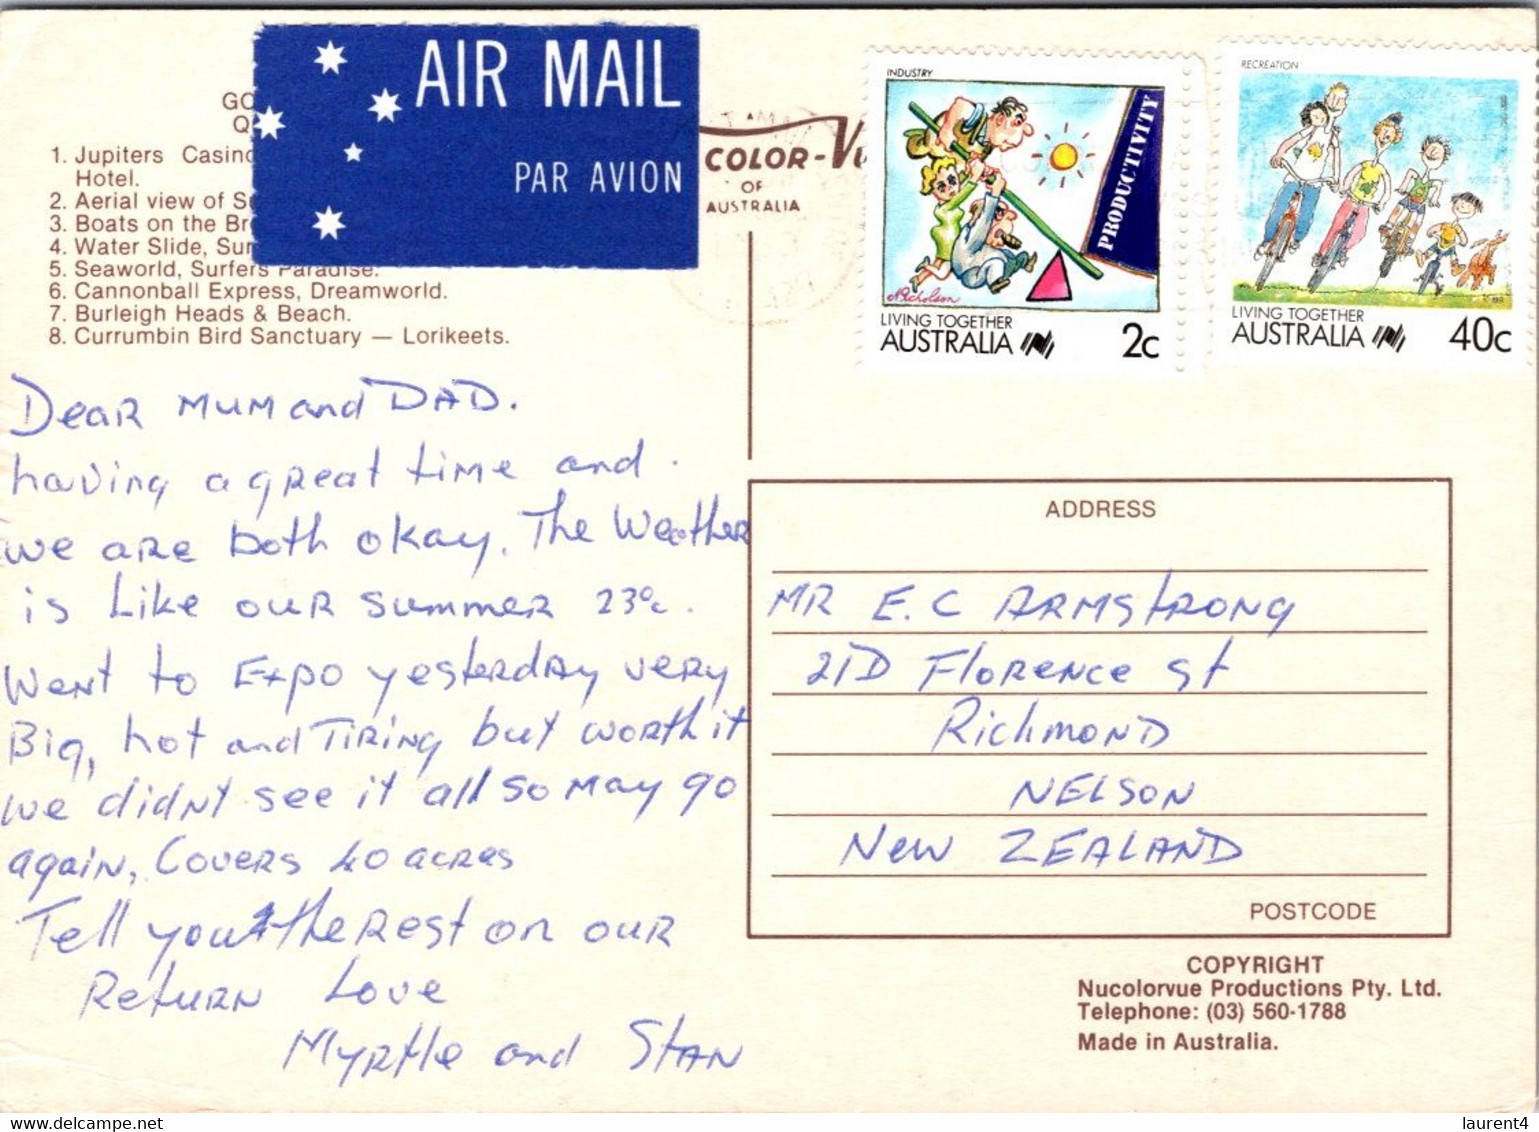 AIR MAIL
PAR AVION
GO
Q
1. Jupiters Casino
Hotel.
2. Aerial view of S
3. Boats on the Br
4. Water Slide, Sur
5. Seaworld, Surfers Paradise.
6. Cannonball Express, Dreamworld.
7. Burleigh Heads & Beach.
8. Currumbin Bird Sanctuary — Lorikeets.
COLOR-VU
OF
AUSTRALIA
INDUSTRY
PRODUCTIVITY
Nicholson
LIVING TOGETHER
AUSTRALIA 2c
RECREATION
LIVING TOGETHER
AUSTRALIA 40c
Dear MUM and DAD.
having a great time and.
we are both okay. The Weather
is Like our summer 23°c.
Went to Expo yesterday very
Big, hot and Tiring but worth it
we didnt see it all so may go
again, Covers 40 acres
Tell you the rest on our
Return Love
Myrtle and Stan
ADDRESS
MR E.C ARMSTRONG
21D Florence St
Richmond
NELSON
New ZEALAND
POSTCODE
COPYRIGHT
Nucolorvue Productions Pty. Ltd.
Telephone: (03) 560-1788
Made in Australia.
delcampe.net
laurent4